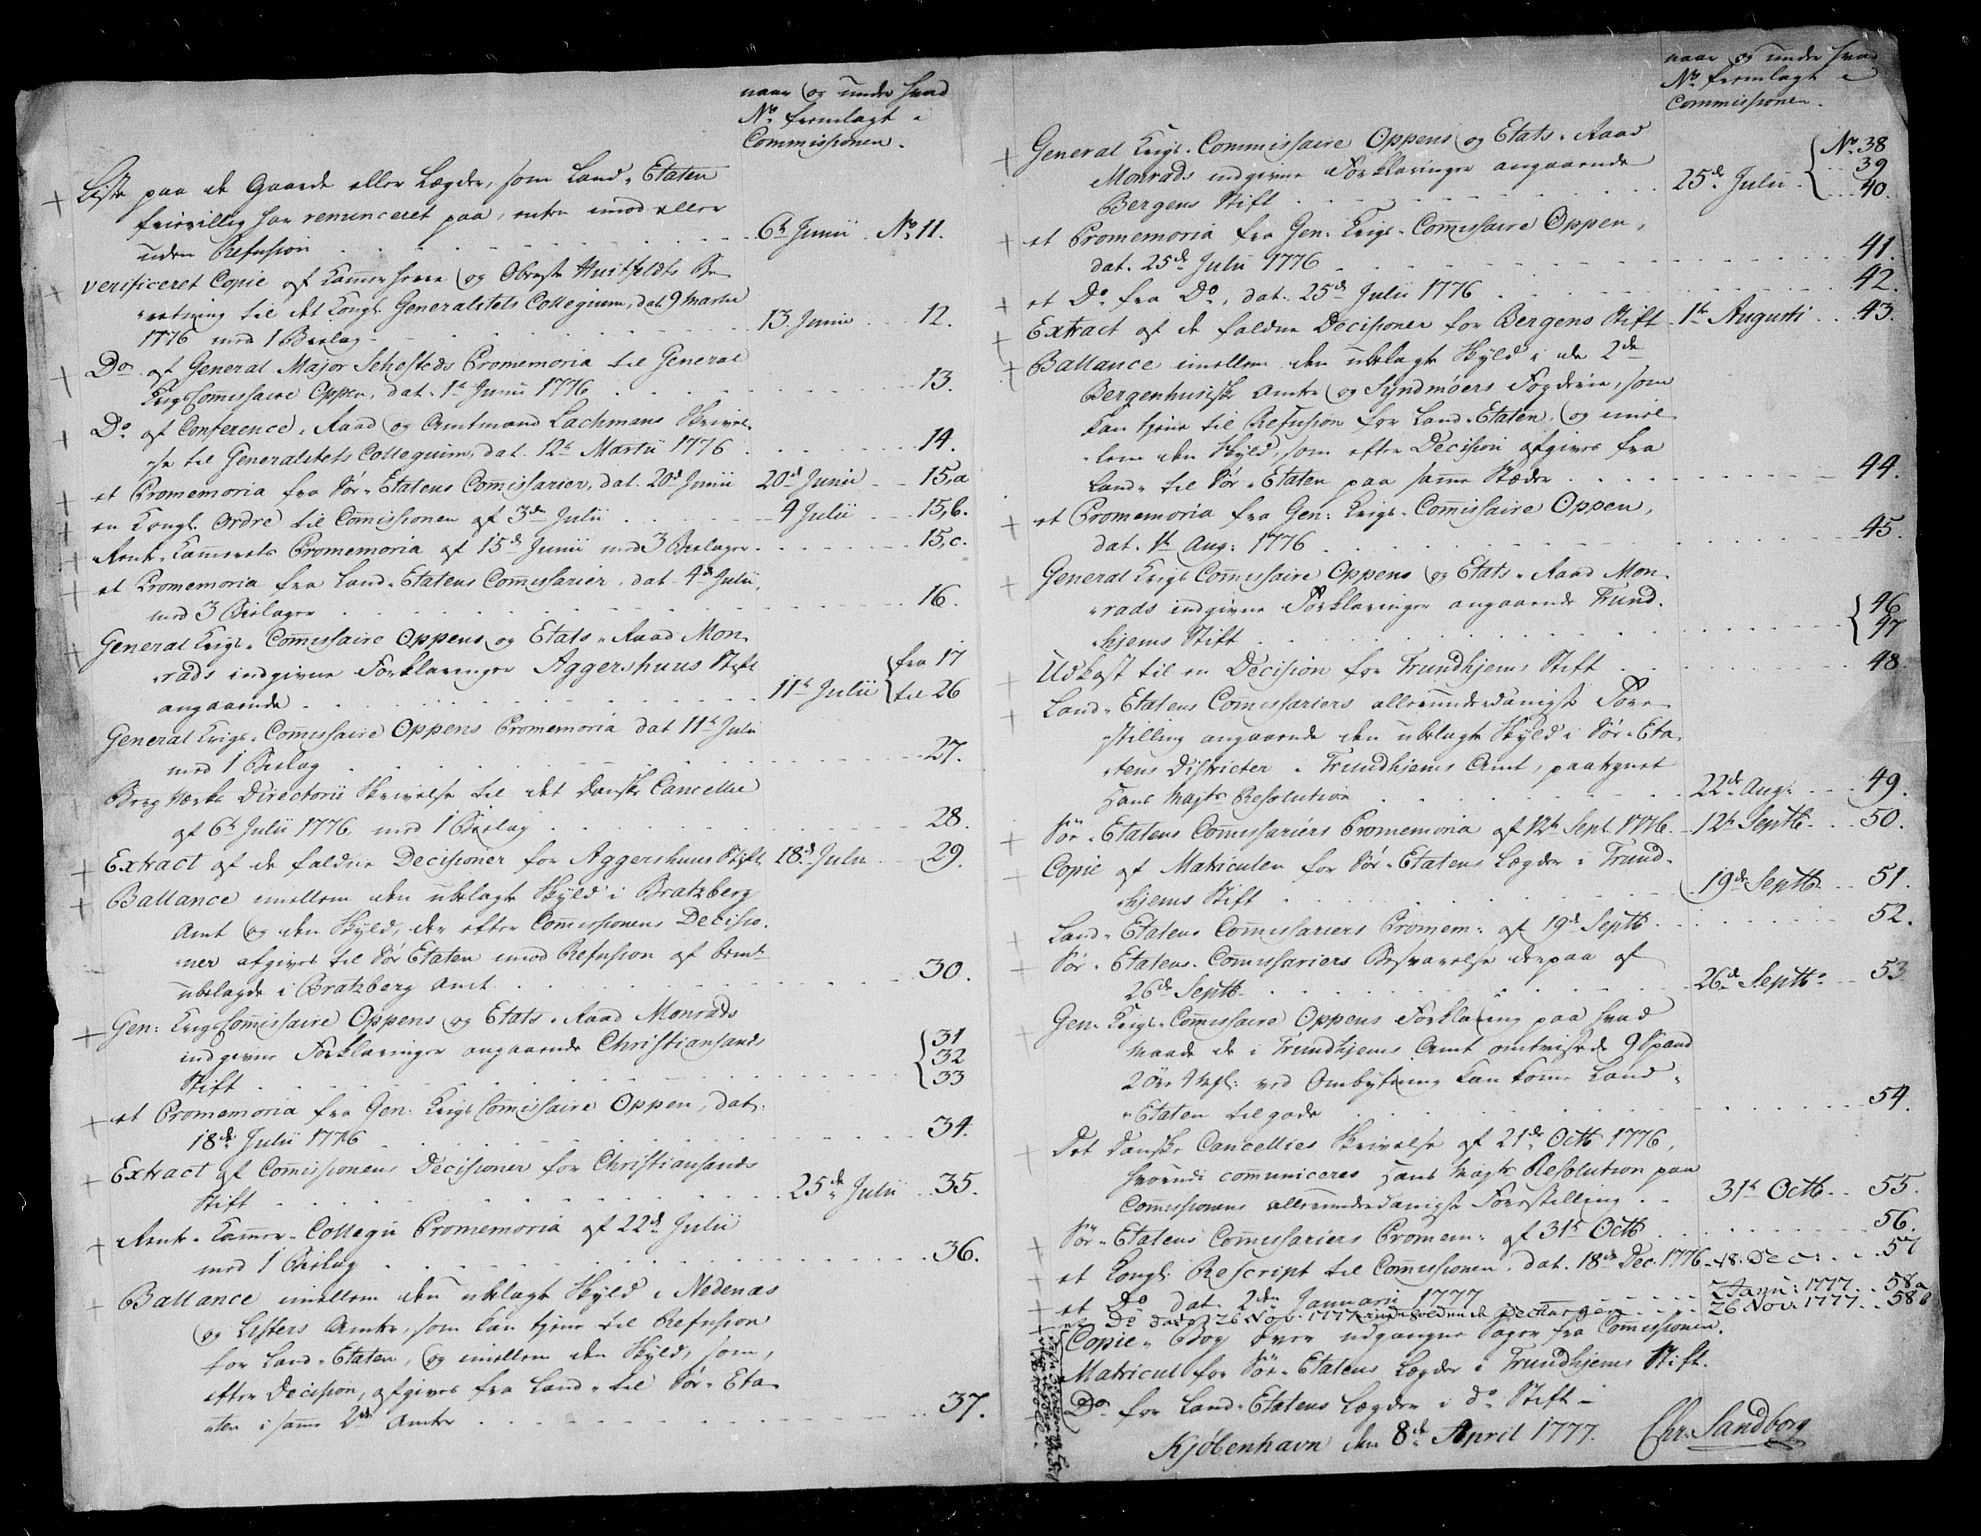 naar og under hvad
No. fremlagt i
Commissionen.
Liste paa de Gaarde eller Lægder, som Land-Etaten
frivillig har renunceret paa, enten imod eller
uden Refusion . . . 6te Junii No. 11.
verificeret Copie af Kammerherre og Obriste Huitfeldts Be-
retning til det Kongl. Generalitets Collegium, dat. 9 Martii
1776 med 1 Beelag . . . 13 Junii 12.
Do. af General Major Sehesteds Promemoria til General
Krigs Comissaire Oppen, dat. 1te Junii 1776 . . . 13.
Do. af Conference-Raad og Amtmand Lachmans Skrivel-
se til Generalitets Collegium, dat. 12te Martii 1776 . . . 14.
et Promemoria fra Söe-Etatens Comissarier, dat. 20de Junii 20de Junii 15,a
en Kongl. Ordre til Comissionen af 3de Julii . . . 4 Julii 15,b.
Rente-Kammerets Promemoria af 15de Junii med 3 Beelager . . . 15,c.
et Promemoria fra Land-Etatens Comissarier, dat. 4de Julii,
med 3 Beelager . . . 16.
General Krigs-Comissaire Oppens og Etats-Raad Mon-
rads indgivne Forklaringer Aggershuus Stift fra 17
angaaende . . . 11te Julii til 26
General Krigs-Comissaire Oppens Promemoria dat 11te Julii
med 1 Beelag . . . 27.
Berg Værks Directorii Skrivelse til det danske Cancellie
af 6te Julii 1776, med 1 Beelag . . . 28.
Extract af de faldne Decisioner for Aggershuus Stift 18de Julii 29.
Ballance imellem den ubelagte Skyld i Bratzberg
Amt og den Skyld, der efter Comissionens Decisio-
ner afgives til Söe Etaten imod Refusion af bemte
ubelagde i Bratzberg Amt . . . 30.
Gen: Krigs Comissaire Oppens og Etats-Raad Monrads
indgivne Forklaringer angaaende Christiansands 31
32
Stift . . . 33
et Promemoria fra Gen: Krigs Comissaire Oppen, dat.
18de Julii 1776 . . . 34.
Extract af Comissionens Decisioner for Christiansands
Stift . . . 25de Julii 35.
Rente-Kammer-Collegii Promemoria af 22de Julii
med 1 Beelag . . . 36.
Ballance imellem den ubelagte Skyld i Nedenæs
og Listers Amter, som kan tjene til Refusion
for Land-Etaten, og imellem den Skyld, som,
efter Decision, afgives fra Land- til Söe-Eta-
ten i samme 2de Amter . . . 37.
naar og under hvad
No. fremlagt i
Commissionen.
General Krigs-Commissaire Oppens og Etats-Raad No. 38
Monrads indgivne Forklaringer angaaende 39
Bergens Stift . . . 25de Julii 40.
et Promemoria fra Gen: Krigs-Comissaire Oppen,
dat. 25de Julii 1776 . . . 41.
et Do. fra Do., dat. 25de Julii 1776 . . . 42.
Extract af de faldne Decisioner for Bergens Stift 1te Augusti 43.
Ballance imellem den ubelagte Skyld i de 2de
Bergenhusiske Amter og Syndmøers Fogderie, som
kan tjene til Refusion for Land-Etaten, og imel-
lem den Skyld, som efter Decision afgives fra
Land- til Söe-Etaten paa samme Stæder . . . 44.
et Promemoria fra Gen: Krigs-Comissaire Oppen,
dat. 1te Aug: 1776 . . . 45.
General Krigs Comissaire Oppens og Etats-Raad Mon-
rads indgivne Forklaringer angaaende Trund- 46
hjems Stift . . . 47
Udkast til en Decision for Trundhjems Stift . . . 48.
Land-Etatens Comissariers allerunderdanigste Fore-
stilling angaaende den ubelagte Skyld i Söe-Eta-
tens Districter i Trundhjems Amt, paategnet
Hans Mayts Resolution . . . 22de Aug: 49.
Söe-Etatens Comissariers Promemoria af 12te Sept. 1776. 12te Septb. 50.
Copie af Matriculen for Söe-Etatens Lægder i Trund-
hjems Stift . . . 19de Septb. 51.
Land-Etatens Comissariers Promem: af 19de Septb. . . . 52.
Söe-Etatens-Comissariers Besvarelse derpaa af
26de Septb. . . . 26de Septb. 53
Gen. Krigs-Comissaire Oppens Forklaring paa hvad
Maade de i Trundhjems Amt omtvistede 9 Spand
2 Öre 9 Mgl: ved Ombytning kan komme Land-
Etaten til gode . . . 54.
Det Danske Cancellies Skrivelse af 21de Octb 1776,
hvorudi communiceres Hans Mayts Resolution paa
Comissionens allerunderdanigste Forestilling . . 31te Octb. 55.
Söe-Etatens Comissariers Promem: af 31te Octb . . . 56.
et Kongl. Rescript til Comissionen, dat. 18de Dec. 1776 18. Dec: 57
et Do dat. 2den Januarii 1777 . . . 2 Janu: 1777 58a
et Do dat. 26 Nov. 1777 . . . 26 Nov. 1777 58b
Copie-Bog over udgangne Sager fra Comissionen.
Matricul for Söe-Etatens Lægder i Trundhjems Stift.
Do. for Land-Etatens Lægder i do Stift
Kjöbenhavn den 8de April 1777. Chr. Sandborg